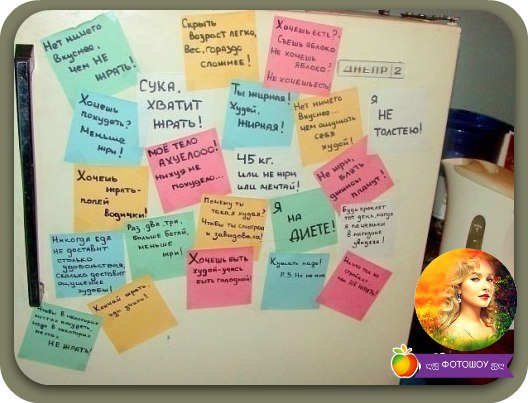 Нет ничего
вкуснее,
чем НЕ
ЖРАТЬ!
Скрыть
возраст легко,
Вес, гораздо
сложнее!
Хочешь есть?-
Съешь яблоко
Не хочешь
яблоко?
Не хочешь есть!
ДНЕПР 2
Хочешь
похудеть?
Меньше
жри!
СУКА,
ХВАТИТ
ЖРАТЬ!
Ты жирная!
Худей,
ЖИРНАЯ!
Нет ничего
вкуснее...
чем ощущать
себя
худой!
Я
НЕ
ТОЛСТЕЮ!
Хочешь
жрать-
попей
водички!
МОЁ ТЕЛО
АХУЕЛОО!
нихуя не
похудело...
45 кг.
или не жри
или мечтай!
Не жри,
блять
джинсы
лопнут!
Никогда еда
не доставит
столько
удовольствия,
сколько доставит
ощущение
худобы!
Раз, два, три,
больше бегай,
меньше
жри!
Почему ты
такая худая?
Чтобы ты смотрела
и завидовала!
Я
НА
ДИЕТЕ!
Будь проклят
тот день, когда
я печеньки
в магазине
увидела!
Чтобы в некоторых
местах похудеть,
надо в некоторых
местах
НЕ ЖРАТЬ!
Кончай жрать,
иди гулять!
Хочешь быть
худой-учись
быть голодной!
Кушать надо!
P.S. Но не мне
НЕ ЖРАТЬ!
ФОТОШОУ